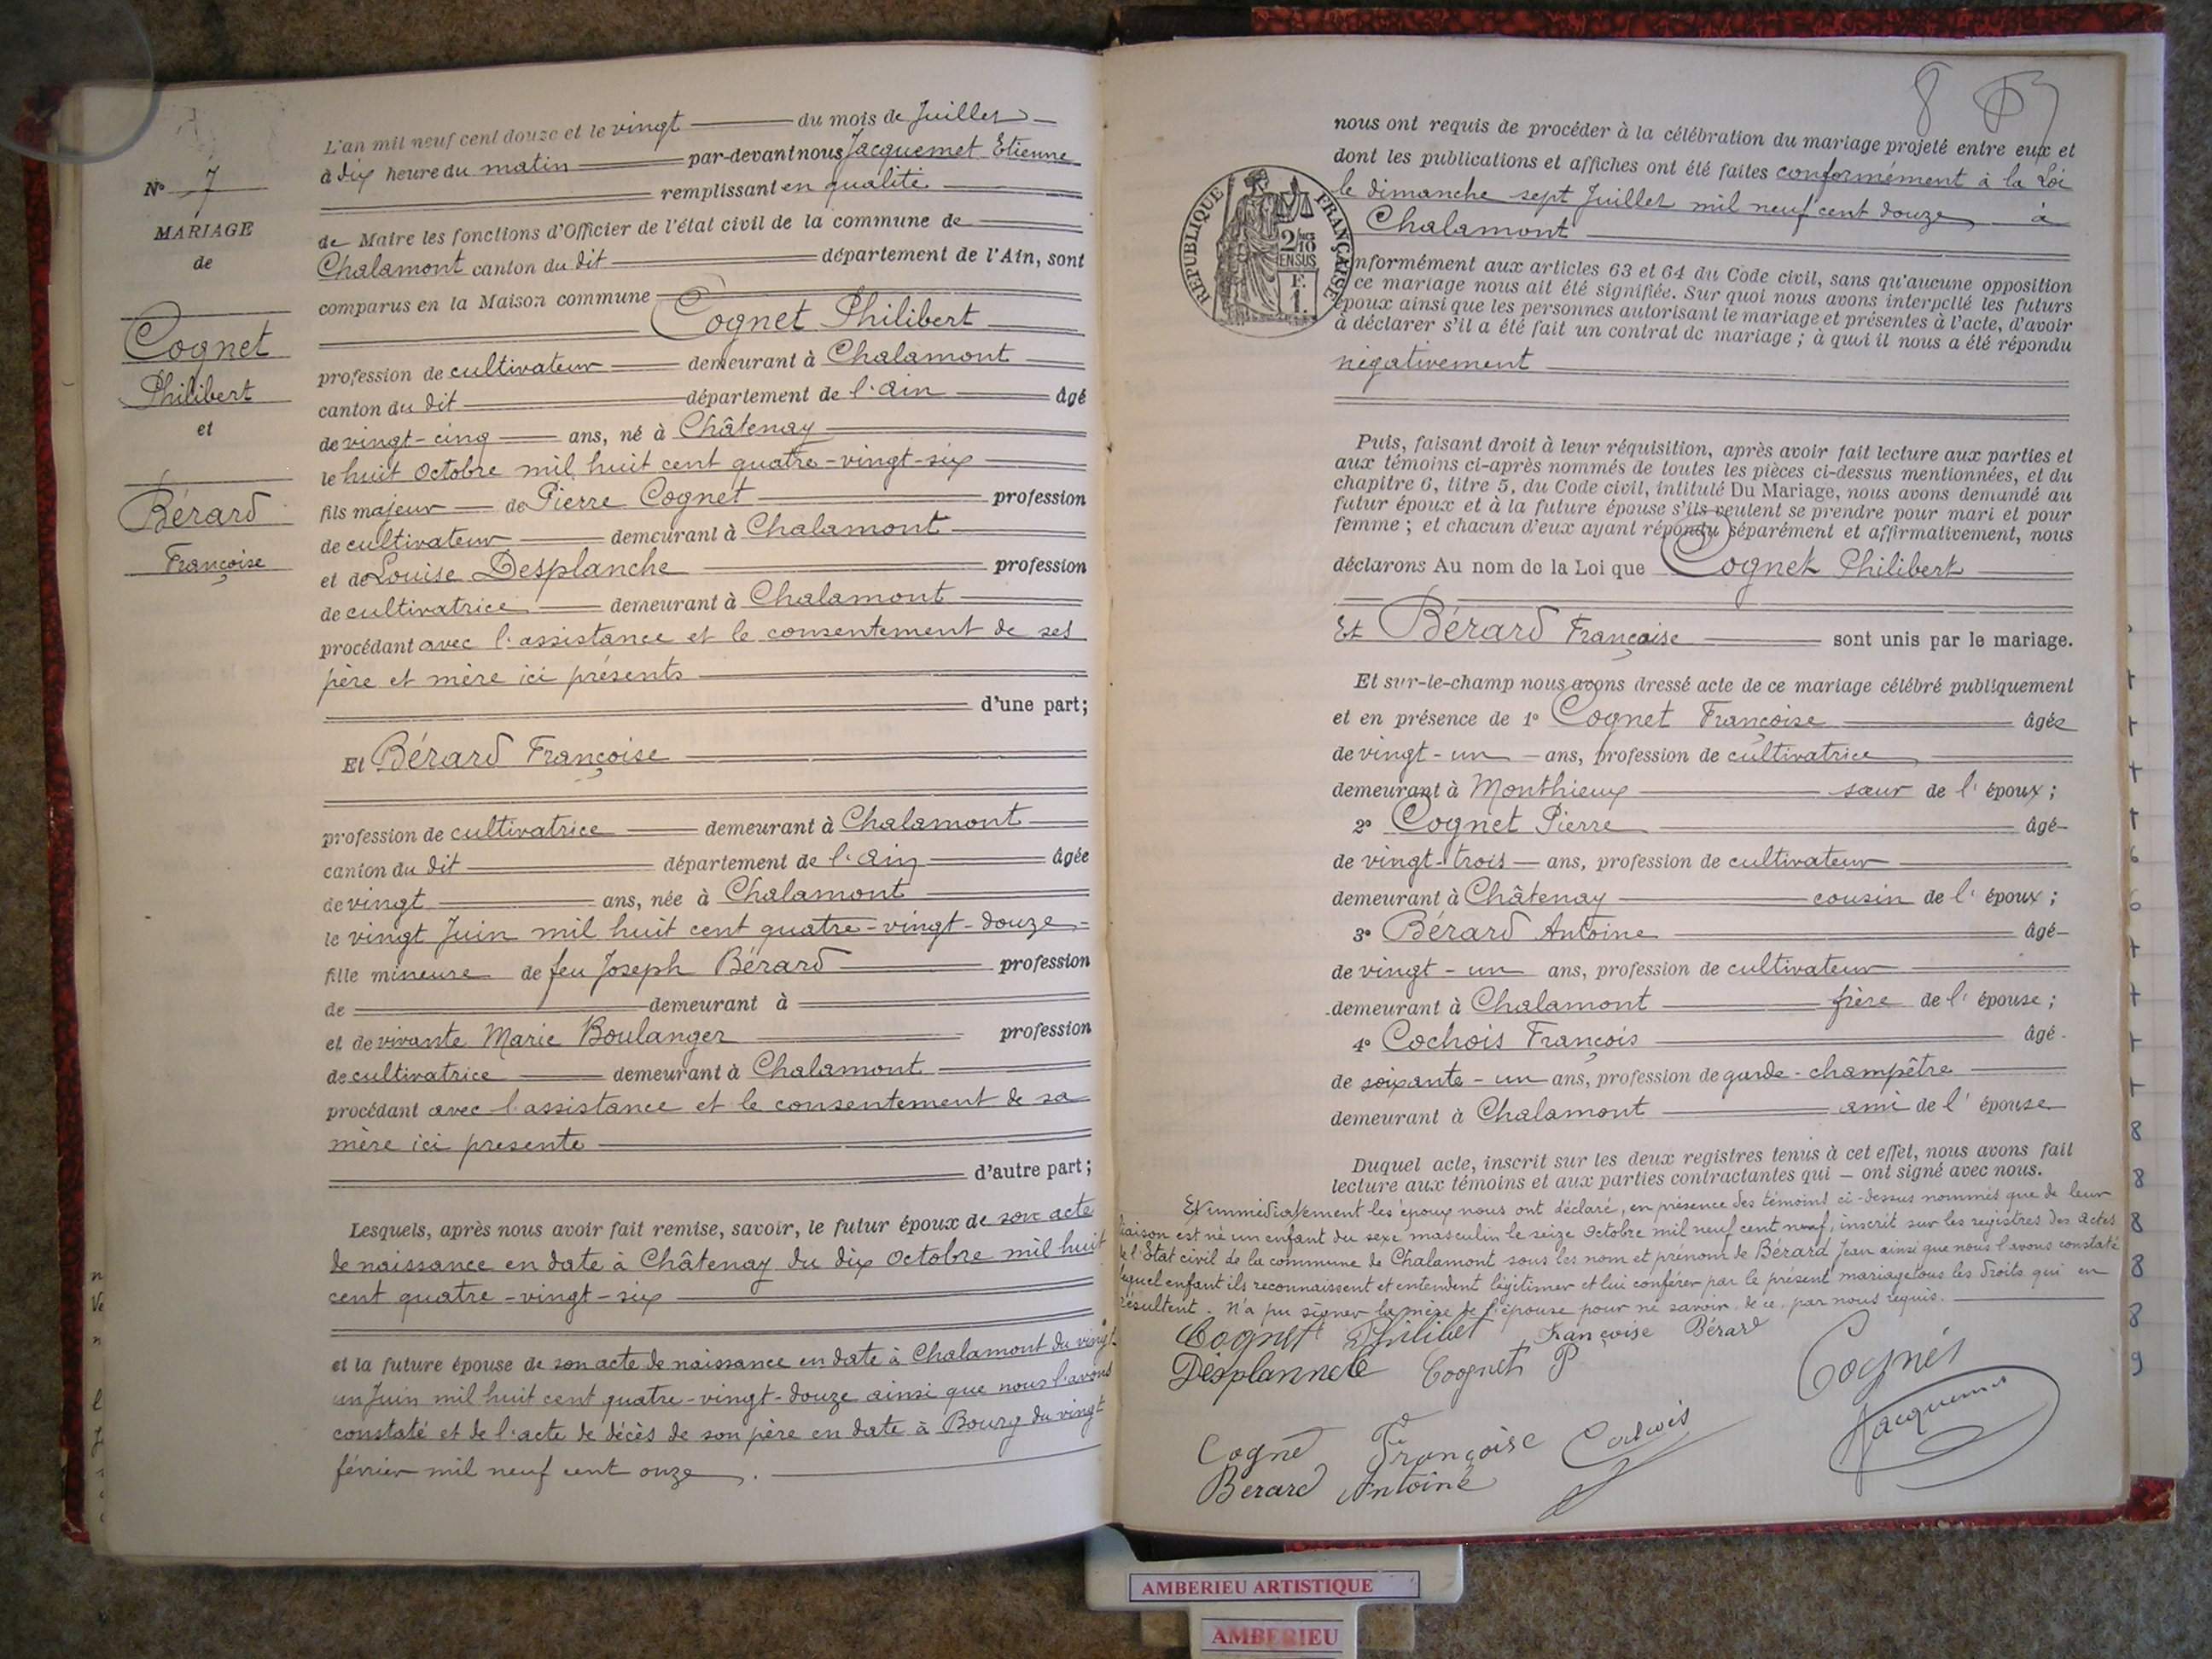 L'an mil neuf cent douze et le vingt du mois de Juillet
à dix heure du matin par-devant nous Jacquemet Etienne
remplissant en qualité
de Maire les fonctions d'Officier de l'état civil de la commune de
Chalamont canton du dit département de l'Ain, sont
comparus en la Maison commune
Cognet Philibert
profession de cultivateur demeurant à Chalamont
canton du dit département de l'Ain âgé
de vingt-cinq ans, né à Châtenay
le huit Octobre mil huit cent quatre-vingt-six
fils majeur de Pierre Cognet profession
de cultivateur demeurant à Chalamont
et de Louise Desplanche profession
de cultivatrice demeurant à Chalamont
procédant avec l'assistance et le consentement de ses
père et mère ici présents
d'une part;
Et Bérard Françoise
profession de cultivatrice demeurant à Chalamont
canton du dit département de l'Ain âgée
de vingt ans, née à Chalamont
le vingt Juin mil huit cent quatre-vingt-douze
fille mineure de feu Joseph Bérard profession
de demeurant à
et de vivante Marie Boulanger profession
de cultivatrice demeurant à Chalamont
procédant avec l'assistance et le consentement de sa
mère ici presente
d'autre part;
Lesquels, après nous avoir fait remise, savoir, le futur époux de son acte
de naissance en date à Châtenay du dix Octobre mil huit
cent quatre-vingt-six
et la future épouse de son acte de naissance en date à Chalamont du vingt-
un Juin mil huit cent quatre-vingt-douze ainsi que nous l'avons
constaté et de l'acte de décès de son père en date à Bourg du vingt
février mil neuf cent onze.
N° 7
MARIAGE
de
Cognet
Philibert
et
Bérard
Françoise
8
nous ont requis de procéder à la célébration du mariage projeté entre eux et
dont les publications et affiches ont été faites conformément à la Loi
le dimanche sept Juillet mil neuf cent douze à
Chalamont
RÉPUBLIQUE FRANÇAISE
2/10
EN SUS
F.
1.
nformément aux articles 63 et 64 du Code civil, sans qu'aucune opposition
ce mariage nous ait été signifiée. Sur quoi nous avons interpellé les futurs
époux ainsi que les personnes autorisant le mariage et présentes à l'acte, d'avoir
à déclarer s'il a été fait un contrat de mariage; à quoi il nous a été répondu
négativement
Puis, faisant droit à leur réquisition, après avoir fait lecture aux parties et
aux témoins ci-après nommés de toutes les pièces ci-dessus mentionnées, et du
chapitre 6, titre 5, du Code civil, intitulé Du Mariage, nous avons demandé au
futur époux et à la future épouse s'ils veulent se prendre pour mari et pour
femme; et chacun d'eux ayant répondu séparément et affirmativement, nous
déclarons Au nom de la Loi que Cognet Philibert
Et Bérard Françoise sont unis par le mariage.
Et sur-le-champ nous avons dressé acte de ce mariage célébré publiquement
et en présence de 1° Cognet Françoise âgée
de vingt-un ans, profession de cultivatrice
demeurant à Monthieux sœur de l'époux;
2° Cognet Pierre âgé
de vingt-trois ans, profession de cultivateur
demeurant à Châtenay cousin de l'époux;
3° Bérard Antoine âgé
de vingt-un ans, profession de cultivateur
demeurant à Chalamont frère de l'épouse;
4° Cochois François âgé
de soixante-un ans, profession de garde-champêtre
demeurant à Chalamont ami de l'épouse
Duquel acte, inscrit sur les deux registres tenus à cet effet, nous avons fait
lecture aux témoins et aux parties contractantes qui ont signé avec nous.
Et immédiatement les époux nous ont déclaré, en présence des témoins ci-dessus nommés que de leur
liaison est né un enfant du sexe masculin le seize Octobre mil neuf cent neuf, inscrit sur les registres des actes
de l'Etat civil de la commune de Chalamont sous les nom et prénom de Bérard Jean ainsi que nous l'avons constaté
lequel enfant ils reconnaissent et entendent légitimer et lui conférer par le présent mariage tous les droits qui en
résultent. N'a pu signer la mère de l'épouse pour ne savoir de ce par nous requis.
Cognet Philibet Françoise Bérard
Desplannche Coognet P Cognét
Cogne Françoise Cochois Jacquemet
Berard Antoine
AMBERIEU ARTISTIQUE
AMBERIEU